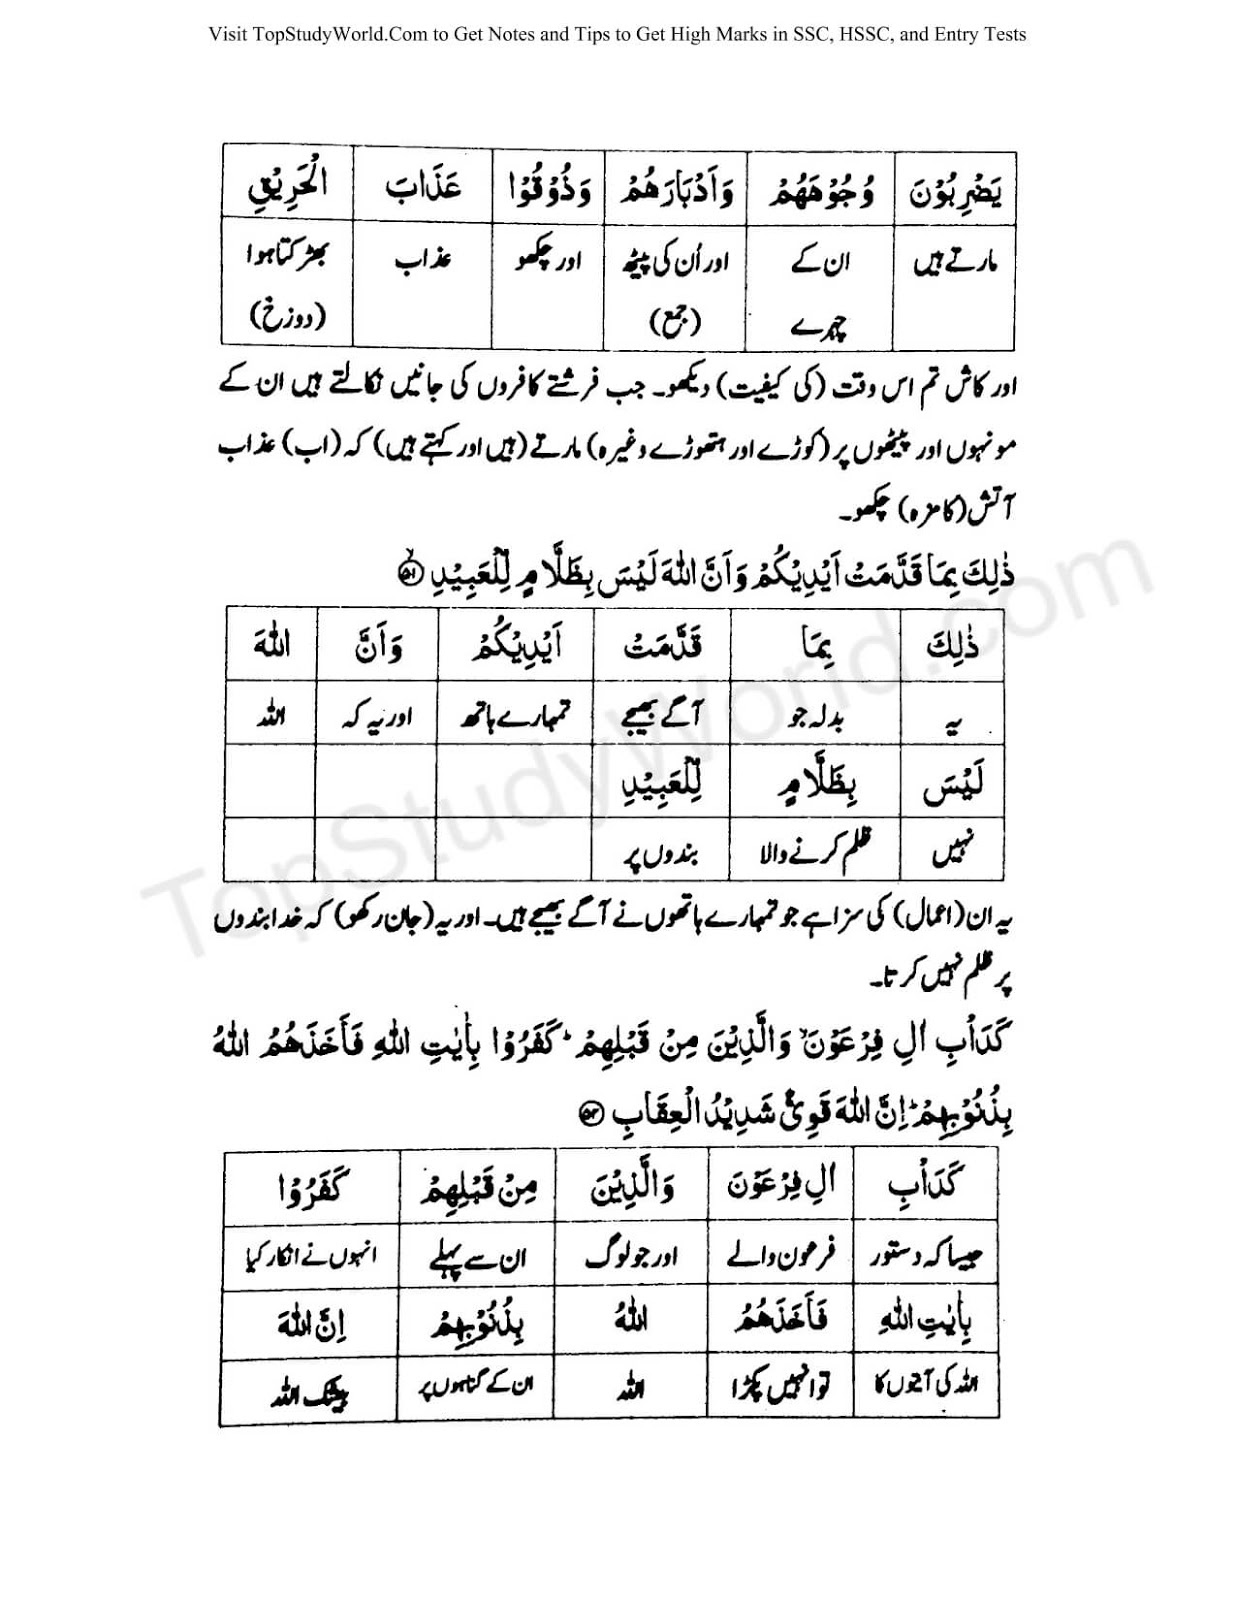 Visit TopStudyWorld.Com to Get Notes and Tips to Get High Marks in SSC, HSSC, and Entry Tests
يَضْرِبُوْنَ وُجُوْهَهُمْ وَاَدْبَارَهُمْ وَذُوْقُوْا عَذَابَ الْحَرِيْقِ
مارتے ہیں ان کے اور اُن کی پیٹھ اور چکھو عذاب بھڑکتا ہوا
چہرے (جمع) (دوزخ)
اور کاش تم اس وقت (کی کیفیت) دیکھو۔ جب فرشتے کافروں کی جانیں نکالتے ہیں ان کے
مونہوں اور پیٹھوں پر (کوڑے اور ہتھوڑے وغیرہ) مارتے (ہیں اور کہتے ہیں) کہ (اب) عذاب
آتش (کا مزہ) چکھو۔
ذٰلِكَ بِمَا قَدَّمَتْ اَيْدِيْكُمْ وَاَنَّ اللّٰهَ لَيْسَ بِظَلَّامٍ لِّلْعَبِيْدِ ۵۱
ذٰلِكَ بِمَا قَدَّمَتْ اَيْدِيْكُمْ وَاَنَّ اللّٰهَ
یہ بدلہ جو آگے بھیجے تمہارے ہاتھ اور یہ کہ اللہ
لَيْسَ بِظَلَّامٍ لِّلْعَبِيْدِ
نہیں ظلم کرنے والا بندوں پر
یہ ان (اعمال) کی سزا ہے جو تمہارے ہاتھوں نے آگے بھیجے ہیں۔ اور یہ (جان رکھو) کہ خدا بندوں
پر ظلم نہیں کرتا۔
كَدَاْبِ اٰلِ فِرْعَوْنَ ۙ وَالَّذِيْنَ مِنْ قَبْلِهِمْ ؕ كَفَرُوْا بِاٰيٰتِ اللّٰهِ فَاَخَذَهُمُ اللّٰهُ
بِذُنُوْبِهِمْ ؕ اِنَّ اللّٰهَ قَوِيٌّ شَدِيْدُ الْعِقَابِ ۵۲
كَدَاْبِ اٰلِ فِرْعَوْنَ وَالَّذِيْنَ مِنْ قَبْلِهِمْ كَفَرُوْا
جیسا کہ دستور فرعون والے اور جو لوگ ان سے پہلے انہوں نے انکار کیا
بِاٰيٰتِ اللّٰهِ فَاَخَذَهُمُ اللّٰهُ بِذُنُوْبِهِمْ اِنَّ اللّٰهَ
اللہ کی آیتوں کا تو انہیں پکڑا اللہ ان کے گناہوں پر بیشک اللہ
TopStudyWorld.com